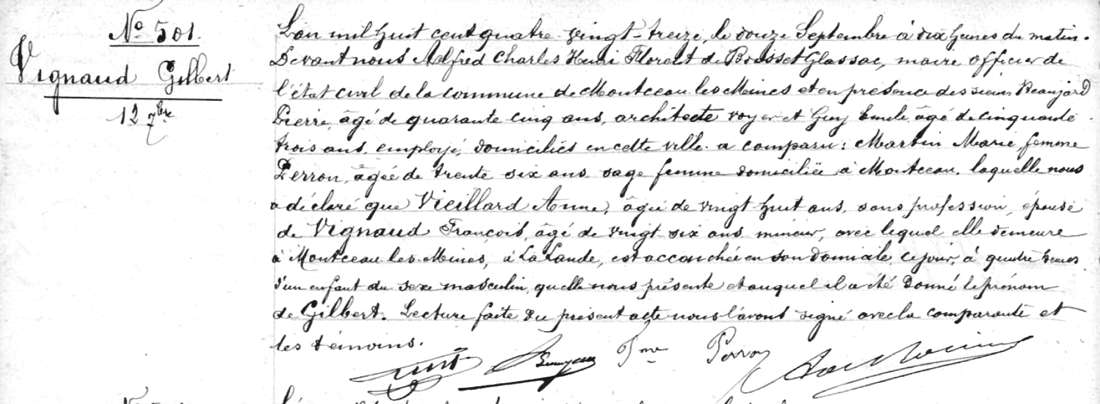 No 501.
Vignaud Gilbert
12 7bre
L'an mil huit cent quatre-vingt-treize, le douze Septembre à dix heures du matin.
Devant nous Alfred Charles Henri Florent de Boisset Glassac, maire officier de
l'état civil de la commune de Montceau les Mines et en présence des sieurs Beaujard
Pierre, âgé de quarante cinq ans, architecte voyer et Guy Emile âgé de cinquante
trois ans, employé, domiciliés en cette ville. a comparu: Martin Marie femme
Perron, âgée de trente six ans, sage femme domiciliée à Montceau, laquelle nous
a déclaré que Vieillard Anne, âgée de vingt huit ans, sans profession, épouse
de Vignaud François, âgé de vingt six ans mineur, avec lequel elle demeure
à Montceau-les-Mines, à La Lande, est accouchée en son domicile, ce jour, à quatre heures
d'un enfant du sexe masculin, qu'elle nous présente et auquel il a été donné le prénom
de Gilbert. Lecture faite du présent acte nous l'avons signé avec la comparante et
les témoins.
Fme Perron